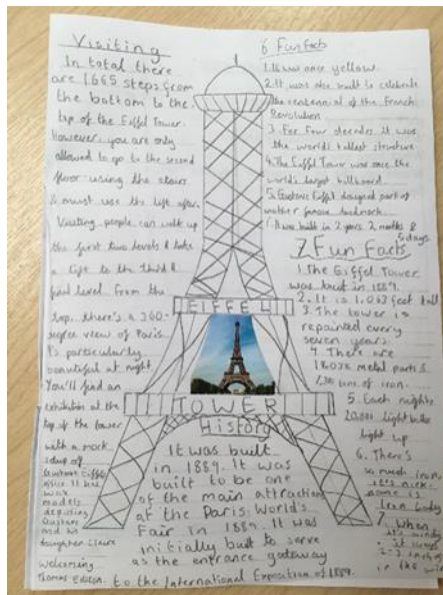 Visiting
In total there
are 1,665 steps from
the bottom to the
top of the Eiffel Tower.
However, you are only
allowed to go to the second
floor using the stairs
& must use the lift after.
Visiting people can walk up
the first two levels & take
a lift to the third &
final level. From the
top, there's a 360-
degree view of Paris.
It's particularly
beautiful at night.
You'll find an
exhibition at the
top of the tower
with a mock
up of
Gustave Eiffel
office. It has
wax
models
depicting
Gustave
and his
daughter Claire
welcoming
Thomas Edison.
6 Fun Facts
1. It was once yellow
2. It was also built to celebrate
the centennial of the French
Revolution
3. For four decades it was
the world's tallest structure
4. The Eiffel Tower was once the
world's largest billboard
5. Gustave Eiffel designed part of
another famous landmark
It was built in 2 years 2 months &
5 days
7 Fun Facts
1. The Eiffel Tower
was built in 1889.
2. It is 1,063 feet tall
3. The tower is
repainted every
seven years
4. There are
18,038 metal parts &
tons of iron.
5. Each night
20,000 light bulbs
light up
6. There's
so much iron,
it's nick
name is
Iron Lady
7. When
it's windy
it
2-3 inches
in the
EIFFEL
TOWER
History
It was built
in 1889. It was
built to be one
of the main attractions
at the Paris World's
Fair in 1889. It was
initially built to serve
as the entrance gateway
to the International Exposition of 1889.